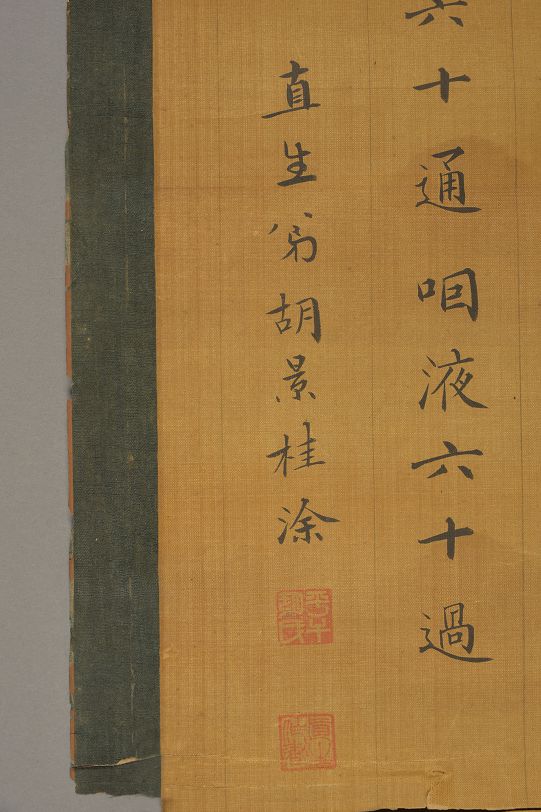 六十通咽液六十過
直生胡景桂涂